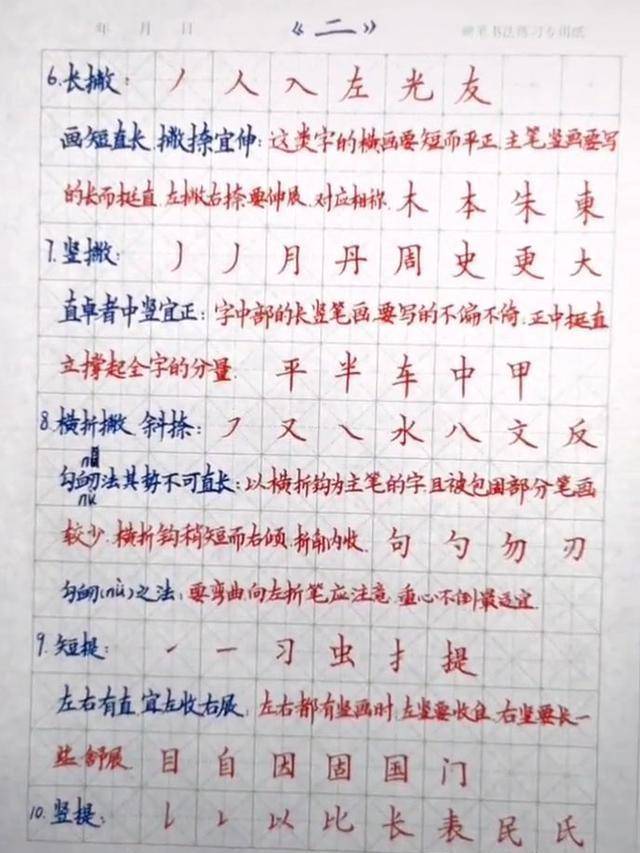 年 月 日 《二》 硬笔书法练习专用纸
6.长撇: 丿 人 入 左 光 友
画短直长,撇捺宜伸:这类字的横画要短而平正.主笔竖画要写
的长而挺直.左撇右捺要伸展.对应相称. 木 本 朱 東
7.竖撇: 丿 丿 月 丹 周 史 更 大
直卓者中竖宜正:字中部的长竖笔画.要写的不偏不倚.正中挺直
立撑起全字的分量. 平 半 车 中 甲
8.横折撇 斜捺: ㇇ 又 ㇏ 水 八 文 反
勾法其势不可直长:以横折钩为主笔的字.且被包围部分笔画
nǜ
较少.横折钩稍短而右倾.折角内收. 句 勺 勿 刃
勾(nǜ)之法:要弯曲向左折笔应注意.重心不倒最适宜.
9.短提: ㇀ ㇀ 习 虫 扌 提
左右有直,宜左收右展.左右都有竖画时.左竖要收住.右竖要长一
些.舒展. 目 自 因 固 国 门
10.竖提: 𠄌 𠄌 以 比 长 表 民 氏